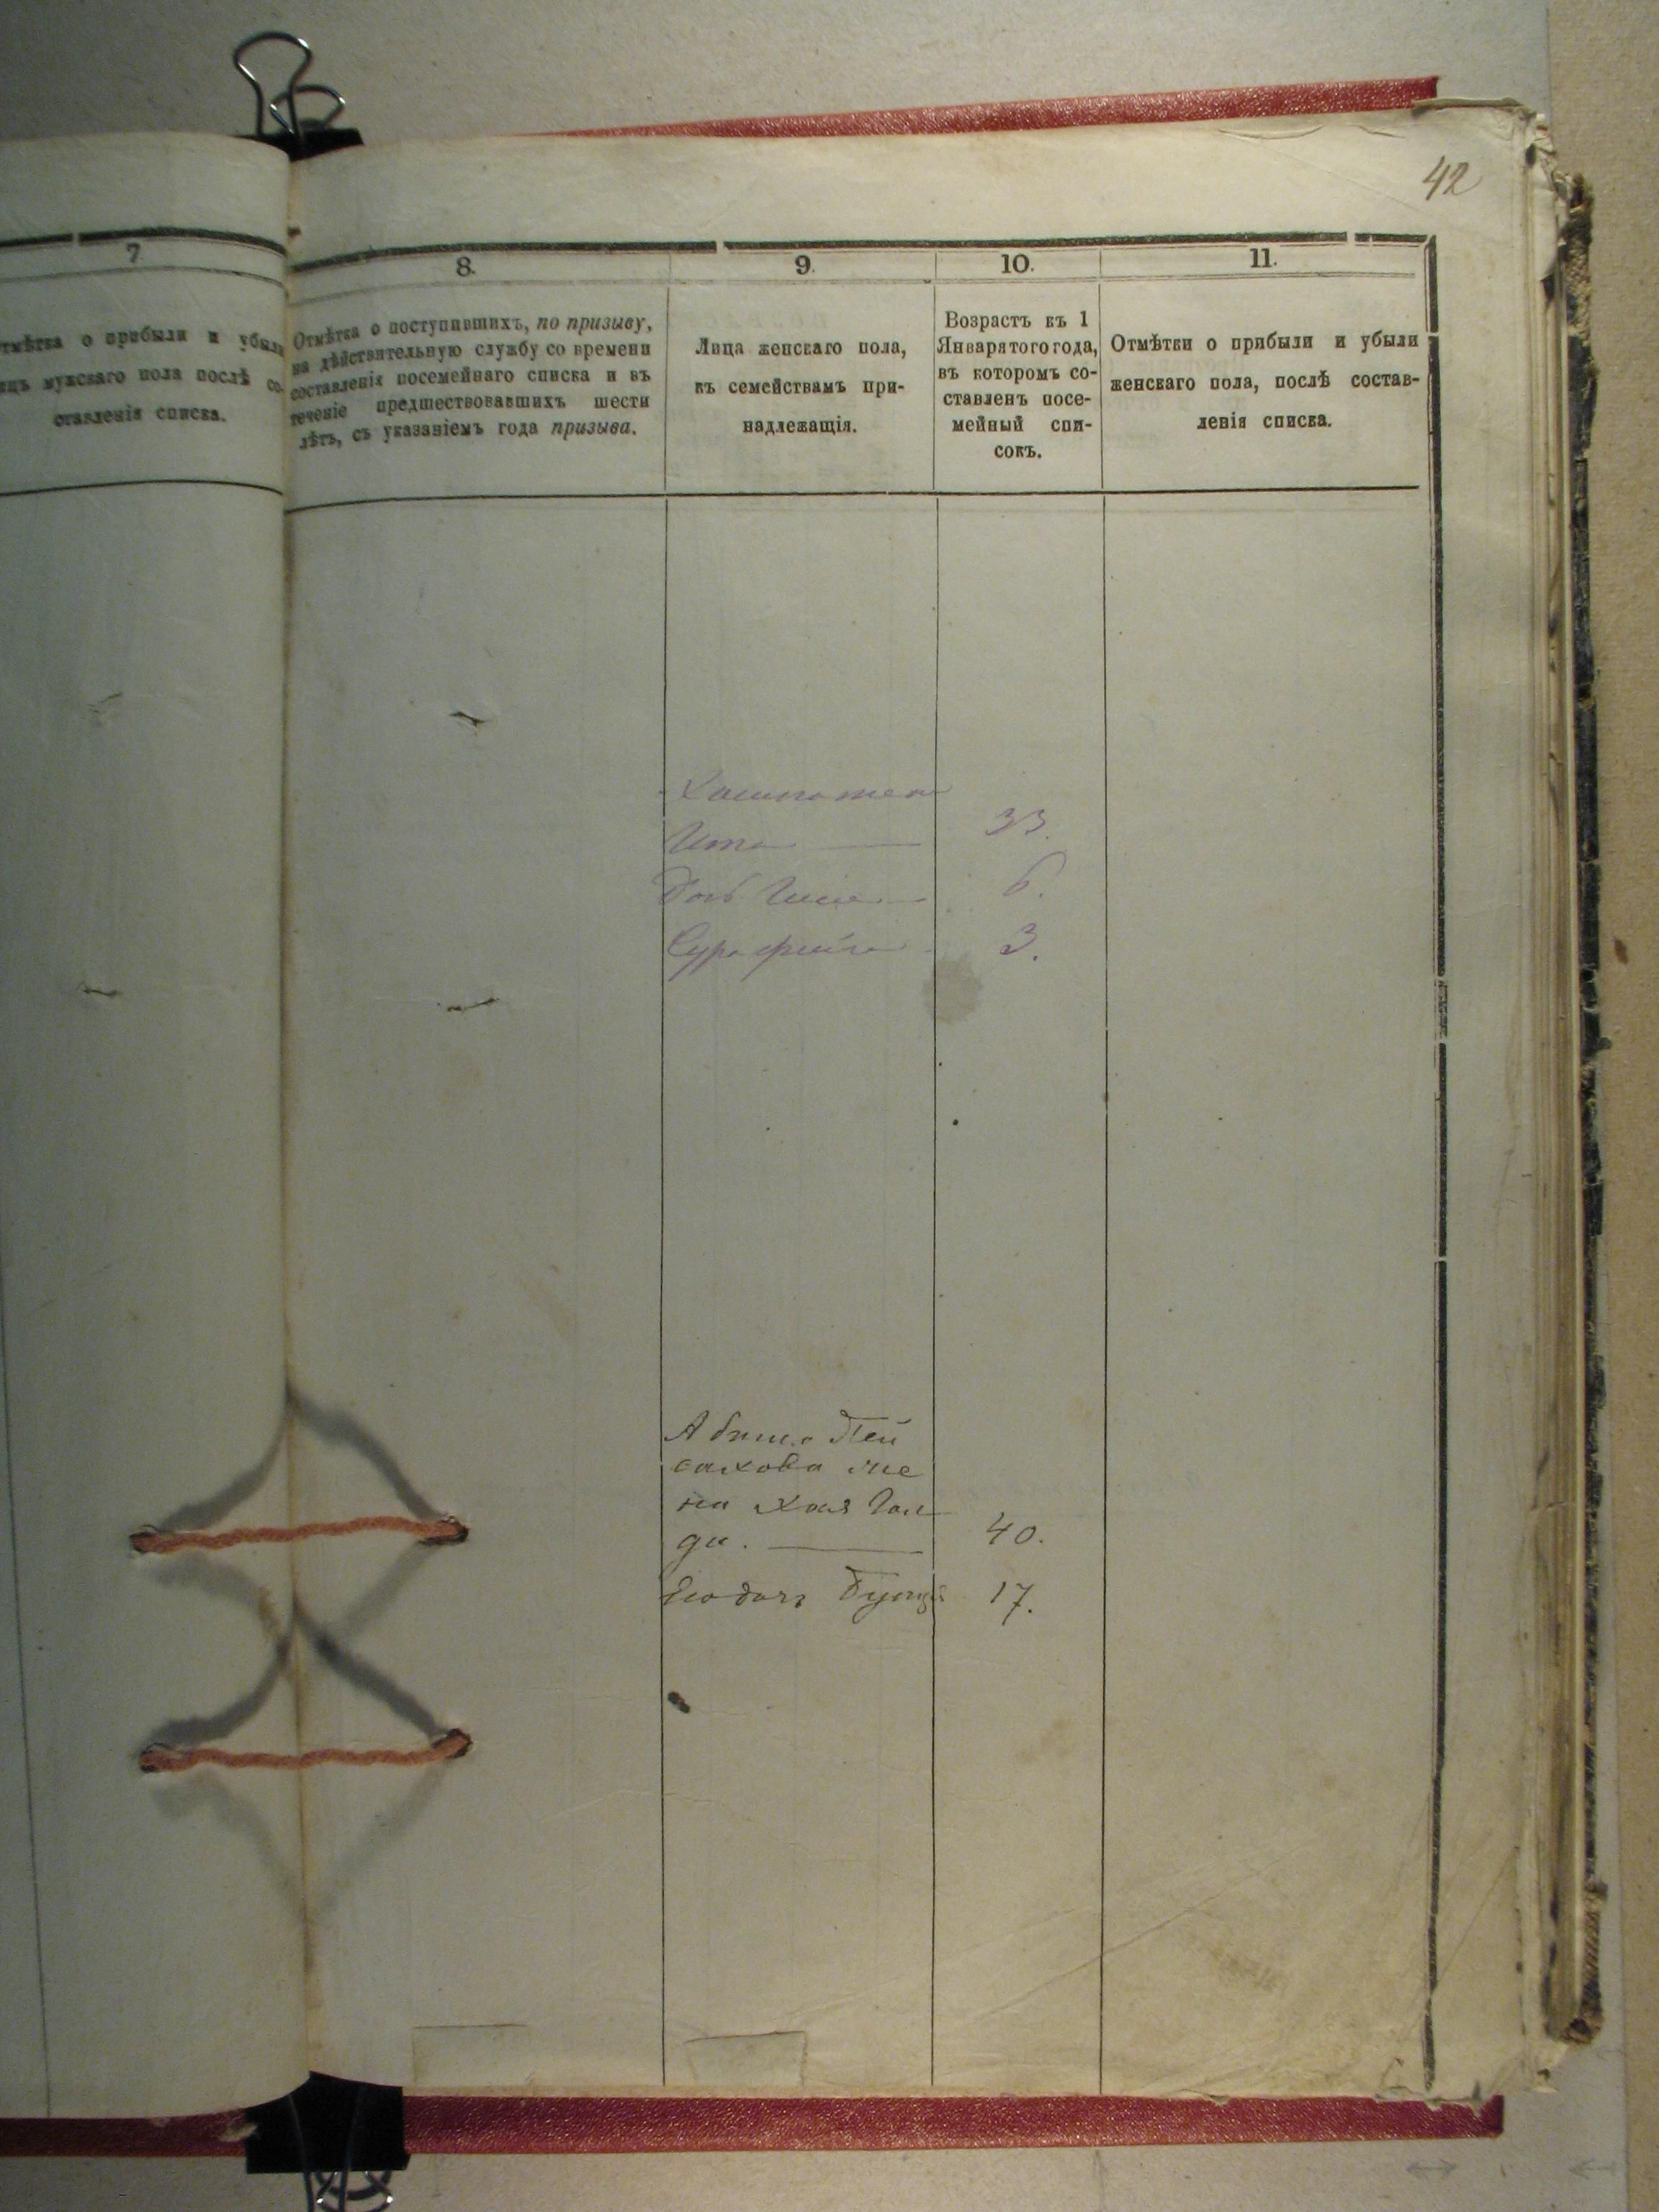 42
7
8.
9.
10.
11.
тмѣтка о прибыли и убыли
мужскаго пола послѣ со-
ставленія списка.
Отмѣтка о поступившихъ, по призыву,
на дѣйствительную службу со времени
составленія посемейнаго списка и въ
теченіе предшествовавшихъ шести
лѣтъ, съ указаніемъ года призыва.
Лица женскаго пола,
къ семействамъ при-
надлежащія.
Возрастъ къ 1
Января того года,
въ которомъ со-
ставленъ посе-
мейный спи-
сокъ.
Отмѣтки о прибыли и убыли
женскаго пола, послѣ состав-
ленія списка.
жена
33.
6.
3.
Пей
сахова же
на Хая Гол
да. 40.
Его дочь 17.